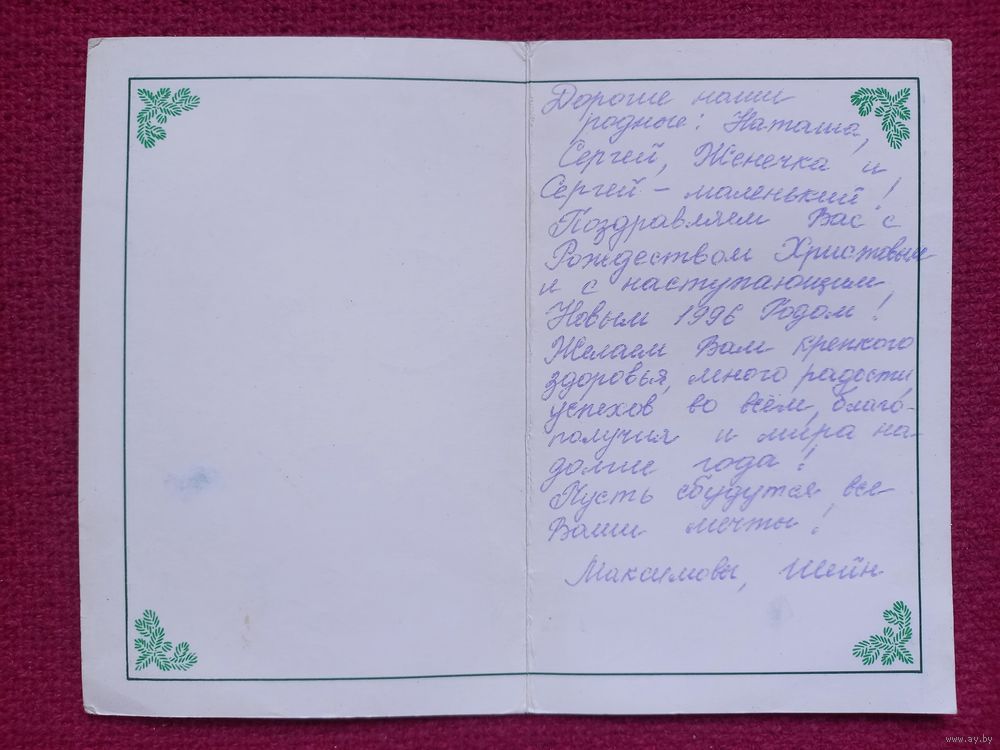 Дорогие наши
родные: Наташа,
Сергей, Женечка и
Сергей - маленький!
Поздравляем Вас с
Рождеством Христовым
и с наступающим
Новым 1996 Годом!
Желаем Вам крепкого
здоровья, много радости,
успехов во всём, благо-
получия и мира на
долгие года!
Пусть сбудутся все
Ваши мечты!
Максимовы, Шейн
www.ay.by